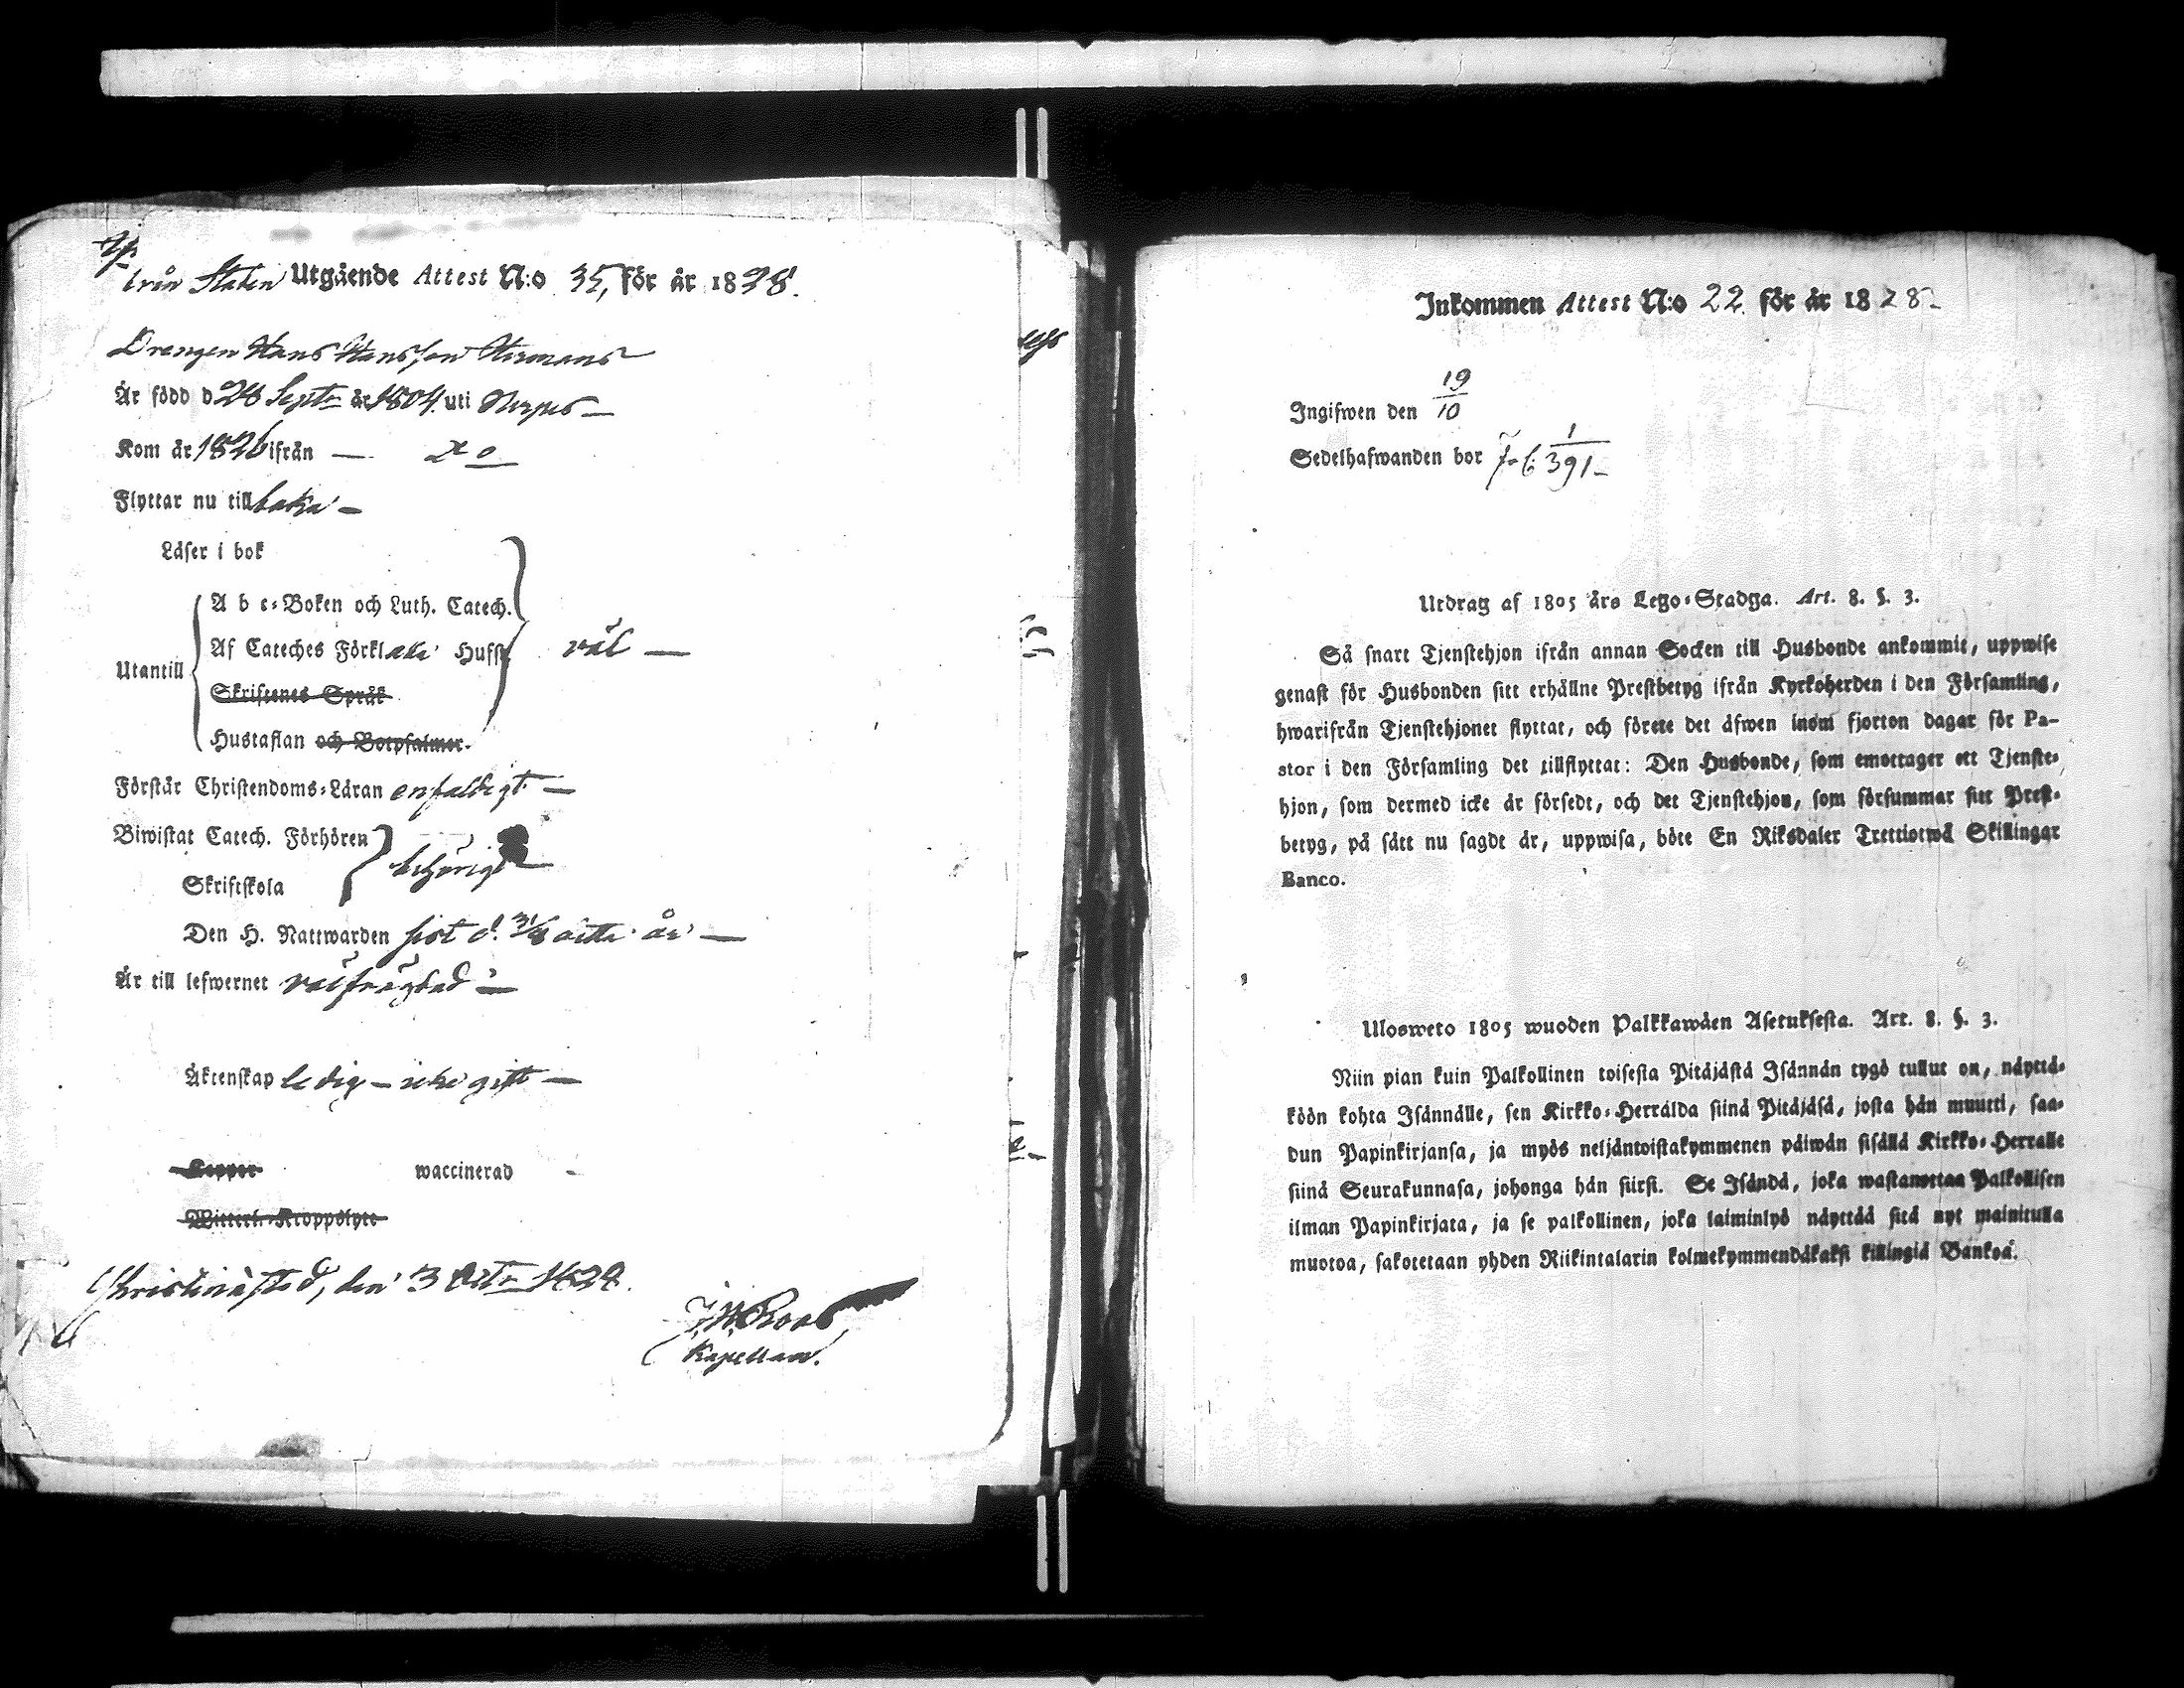 från Staden Utgående Attest N:o 35, för år 1828.
Drängen Hans Hansson Hermans
Är född d 28 Septr år 1804 uti Nerpes —
Kom år 1826 ifrån — do
Flyttar nu tillbaka —
Läser i bok
A b c-Boken och Luth. Catech.
Utantill
Af Cateches Förkl alla Hufst. väl —
Skriftenes Språk
Hustaflan och Botpsalmer.
Förstår Christendoms-Läran enfaldigt —
Biwistat Catech. Förhören
behörigt
Skriftskola
Den H. Nattwarden sist d. 3/8 detta år —
Är till lefwernet välfrägdad —
Äktenskap ledig — icke gift —
Koppor waccinerad -
Witterl. Kroppslyte
Christinæstad, den 3 Octr 1828.
Kapellan.
Inkommen Attest N:o 22 för år 1828
Ingifwen den 19/10
Sedelhafwanden bor 1/391
Utdrag af 1805 års Lego-Stadga. Art. 8. §. 3.
Så snart Tjenstehjon ifrån annan Socken till Husbonde ankommit, uppwise
genast för Husbonden sitt erhållne Prestbetyg ifrån Kyrkoherden i den Församling,
hwarifrån Tjenstehjonet flyttat, och förete det äfwen inom fjorton dagar för Pa-
stor i den Församling det tillflyttat: Den Husbonde, som emottager ett Tjenste-
hjon, som dermed icke är försedt, och det Tjenstehjon, som försummar sitt Prest-
betyg, på sätt nu sagdt är, uppwisa, böte En Riksdaler Trettiotwå Skillingar
Banco.
Ulosweto 1805 wuoden Palkkawäen Asetuksesta. Art. 8. §. 3.
Niin pian kuin Palkollinen toisesta Pitäjästä Isännän tygö tullut on, näyttä-
köön kohta Isännälle, sen Kirkko-Herralda siinä Pitäjäsä, josta hän muutti, saa-
dun Papinkirjansa, ja myös neljäntoistakymmenen päiwän sisällä Kirkko-Herralle
siinä Seurakunnasa, johonga hän siirsi. Se Isändä, joka wastanottaa Palkollisen
ilman Papinkirjata, ja se palkollinen, joka laiminlyö näyttää sitä nyt mainitulla
muotoa, sakotetaan yhden Riikintalarin kolmekymmendäkaksi killingiä Bankoa.